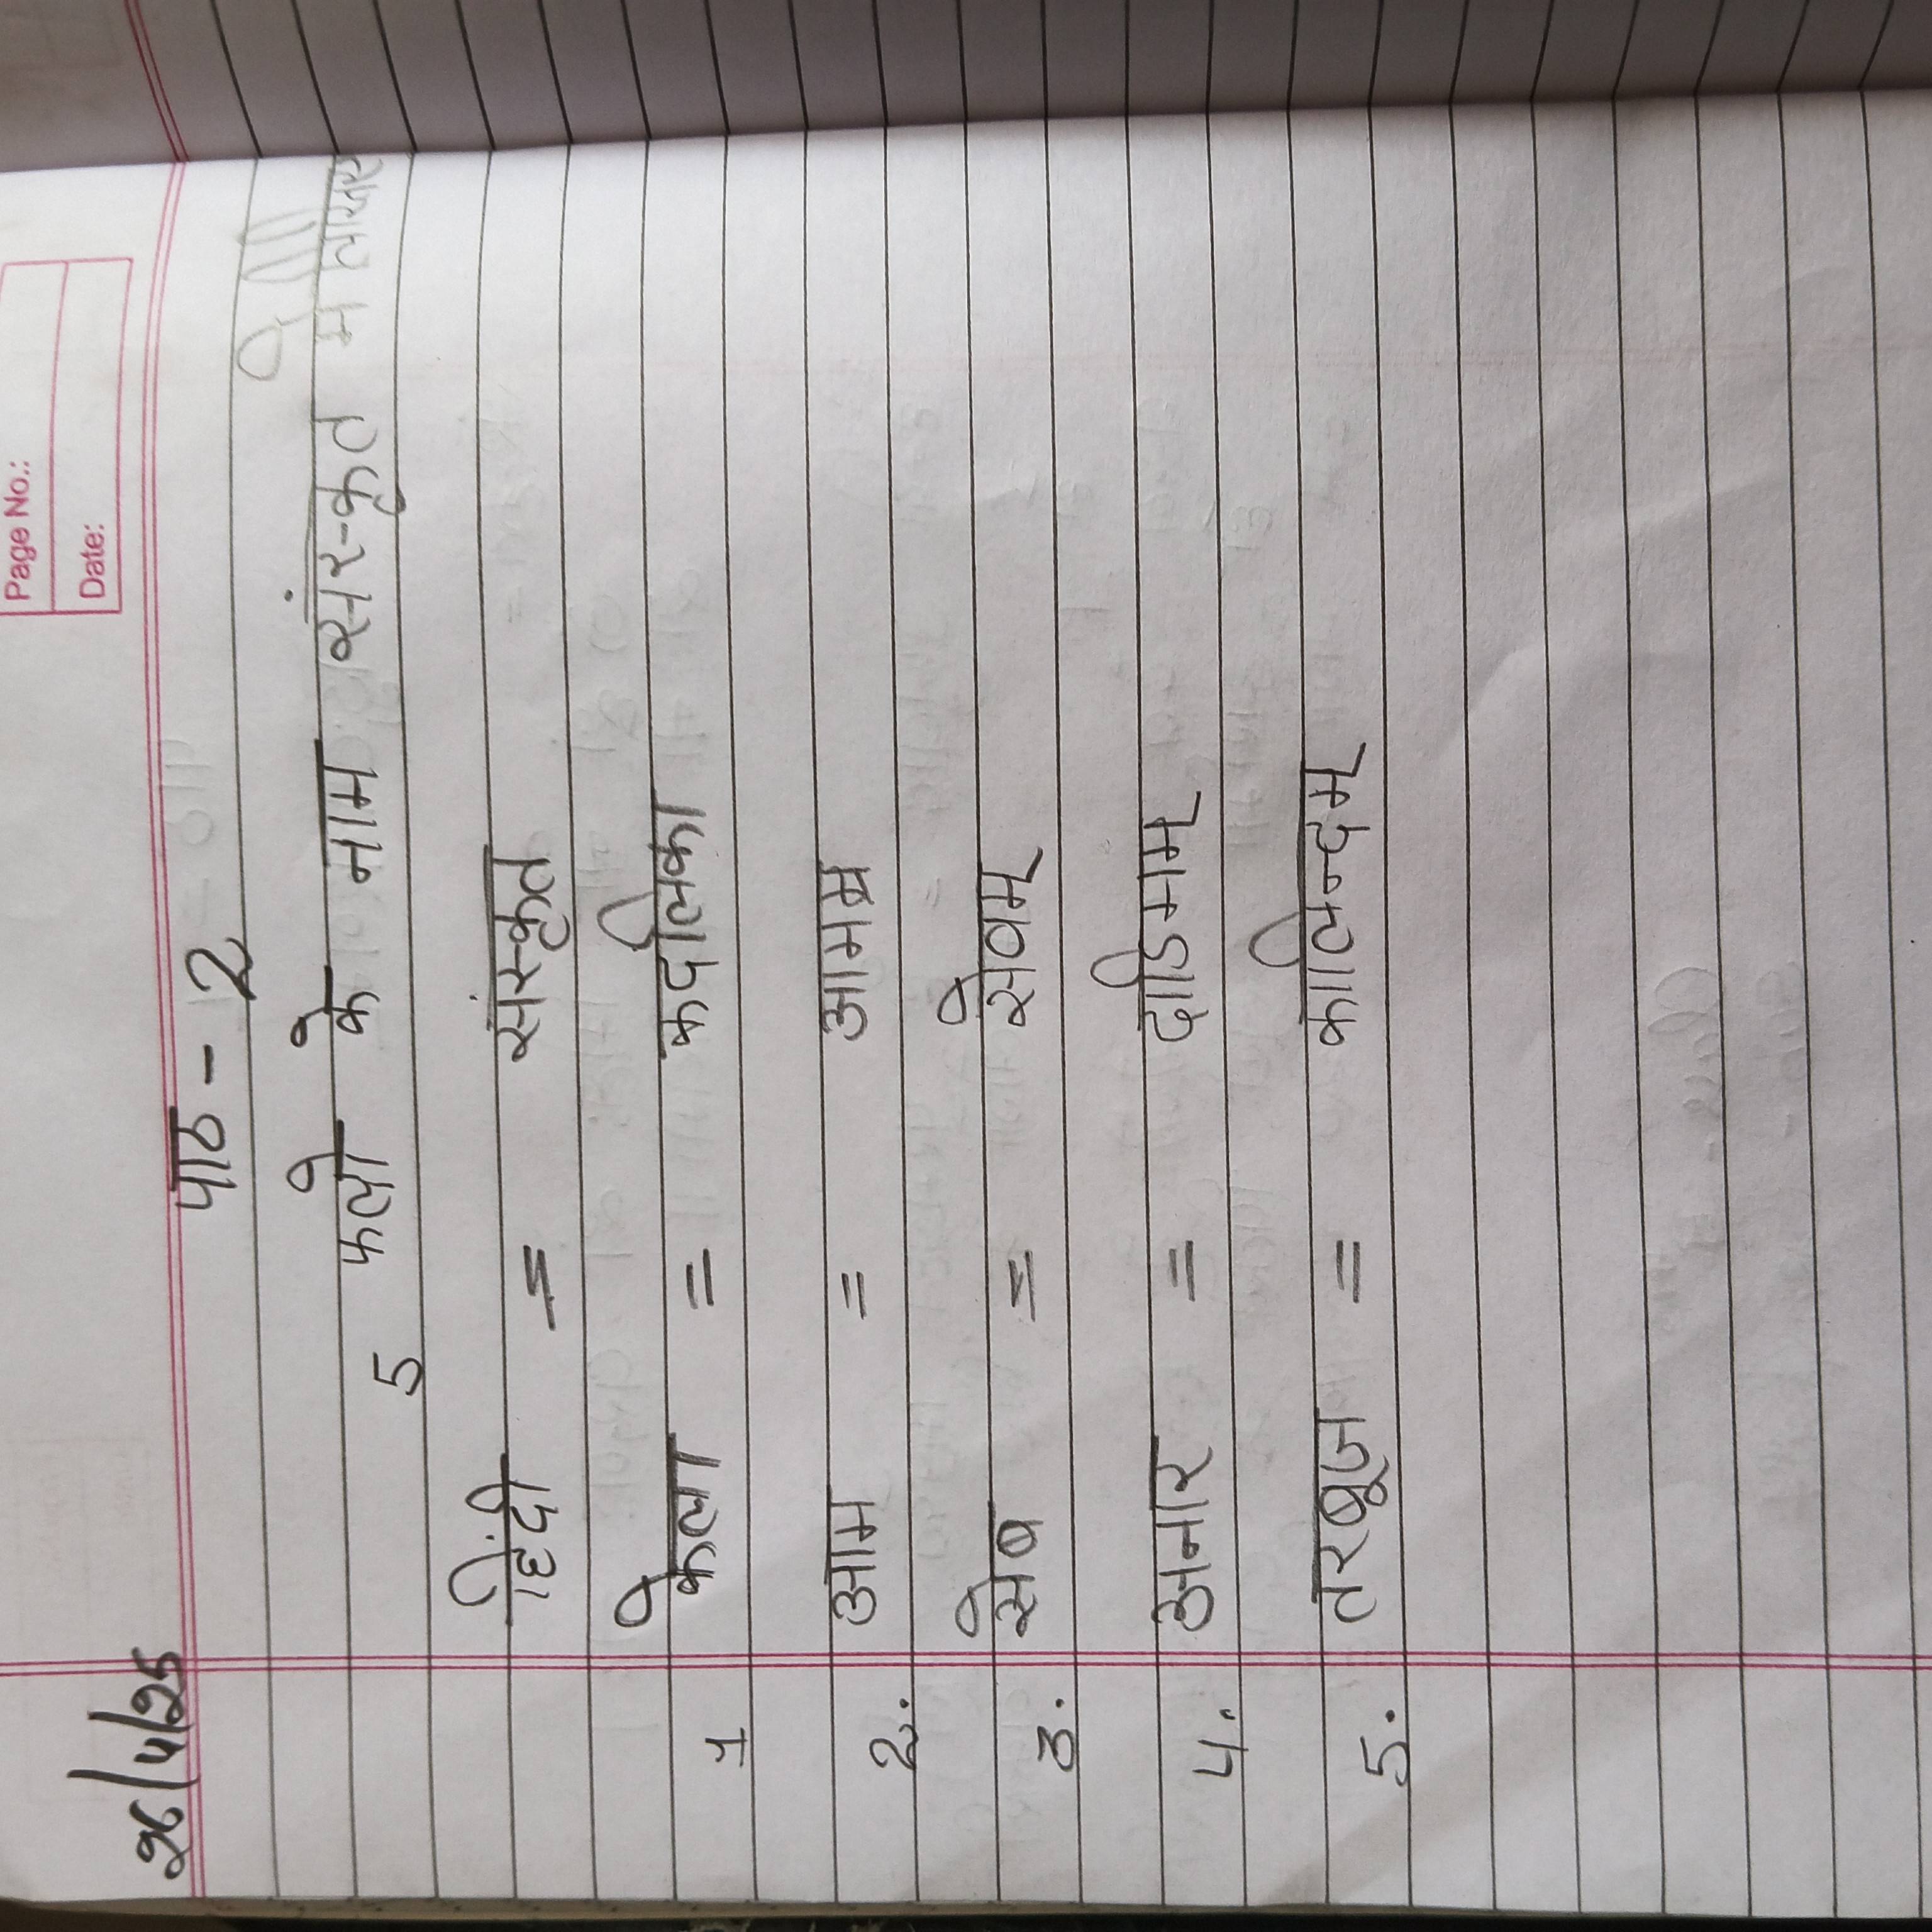 Page No.:
Date:
26/4/25
पाठ - 2
5 फलो के नाम संस्कृत में
हिंदी = संस्कृत
1 केला = कदलिका
2. आम = आमम्र
3. सेब = सेवम्
4. अनार = दाडिमाम्
5. तरबूज = कालिन्दम्